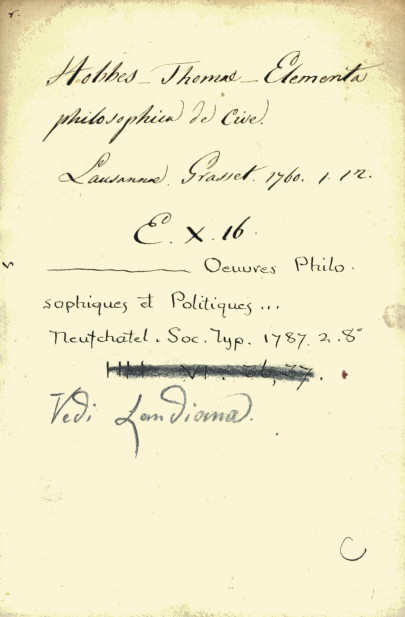 Hobbes - Thomas - Elementa
philosophica de Cive.
Lausannae. Grasset. 1760. 1. 12.
E. X. 16.
Oeuvres Philo-
sophiques et Politiques...
Neufchatel. Soc. Typ. 1787. 2. 8°
VI. 26, 27.
Vedi Landiana.
C